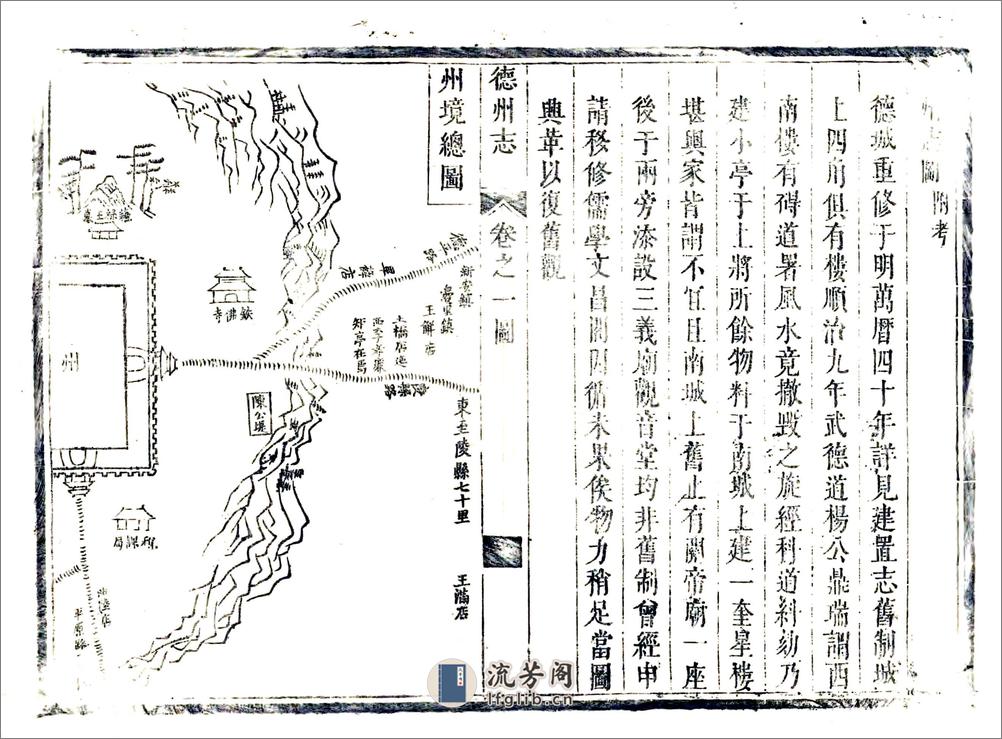 德城重修于明萬曆四十年詳見建置志舊制城
上四角俱有樓順治九年武德道楊公鼎瑞謂西
南樓有碍道署風水竟撤毀之旋經科道糾劾乃
建小亭于上將所餘物料于南城上建一奎星樓
堪輿家皆謂不宜且南城上舊止有關帝廟一座
後于兩旁添設三義廟觀音堂均非舊制曾經申
請移修儒學文昌閣因循未果俟物力稍足當圖
興革以復舊觀
德州志
卷之一圖
州境總圖
新安鎮
王解店
土橋店迤
東至陵縣七十里
王滿店
陳公堤
鐵佛寺
州
平原路
流芳阁
lfglib.cn